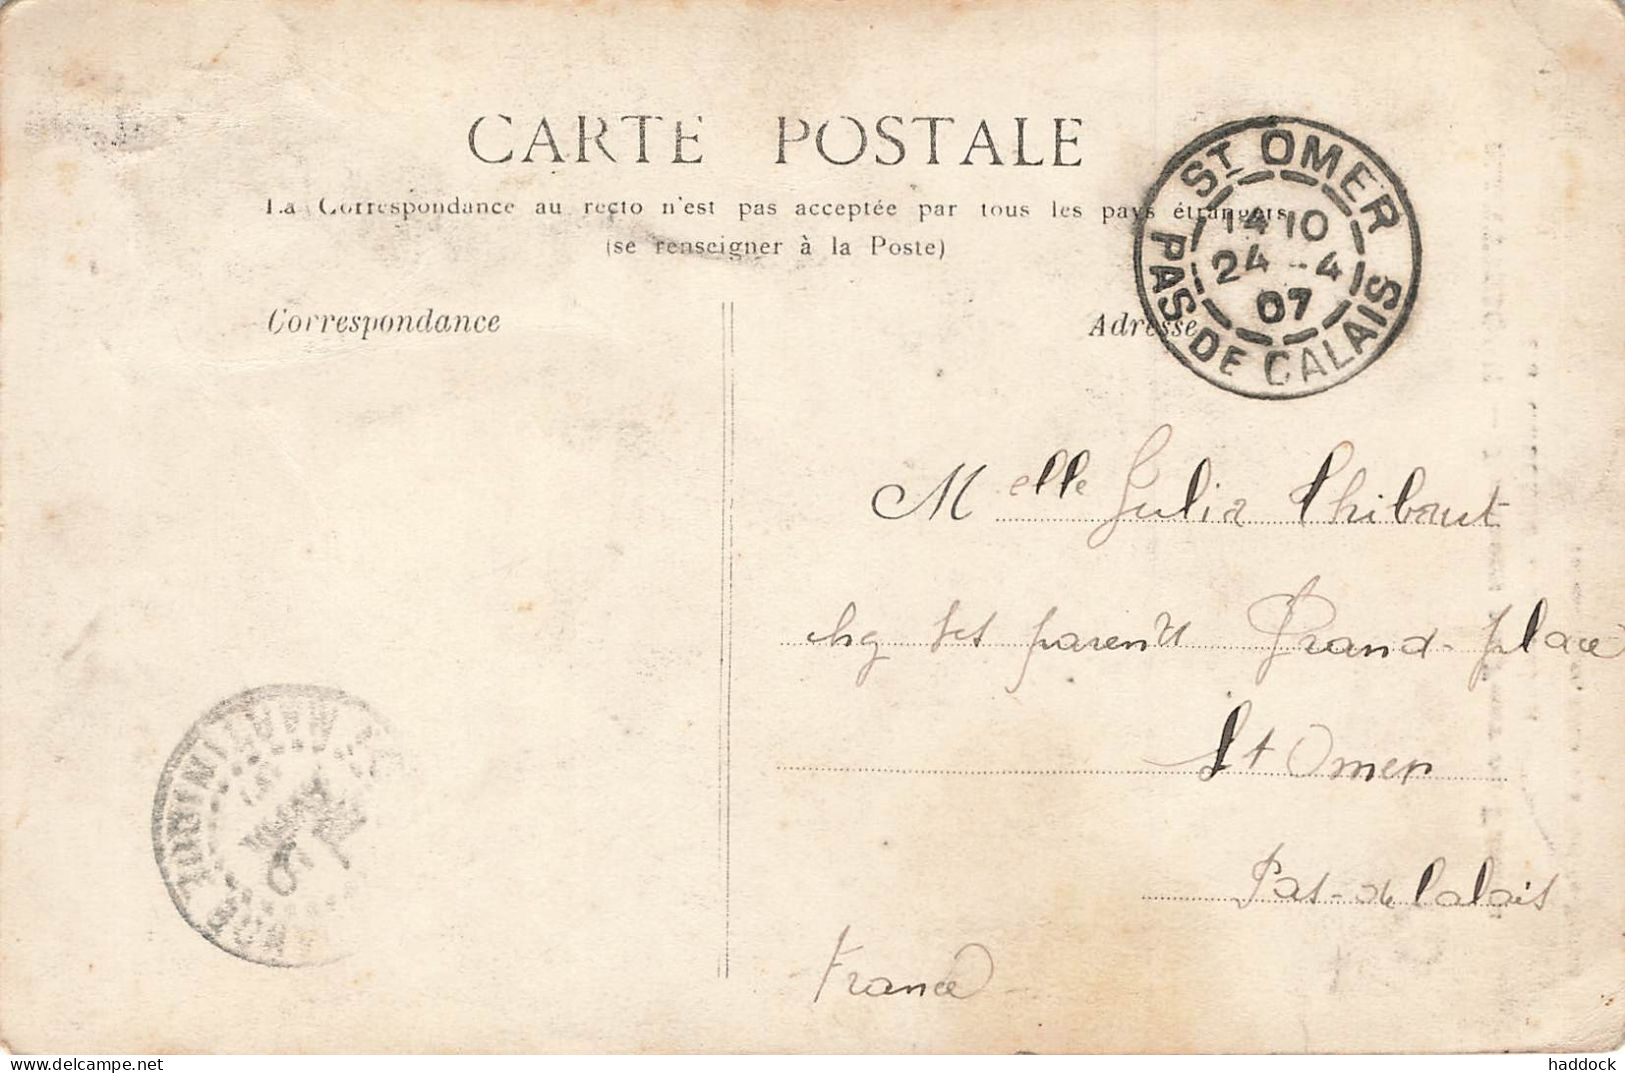 CARTE POSTALE
La Correspondance au recto n'est pas acceptée par tous les pays étrangers
(se renseigner à la Poste)
Correspondance
Adresse
ST OMER
14 10
24 - 4
07
PAS DE CALAIS
Melle Julia Thibaut
chg ses parents Grand-place
St Omer
Pas-de Calais
France
haddock